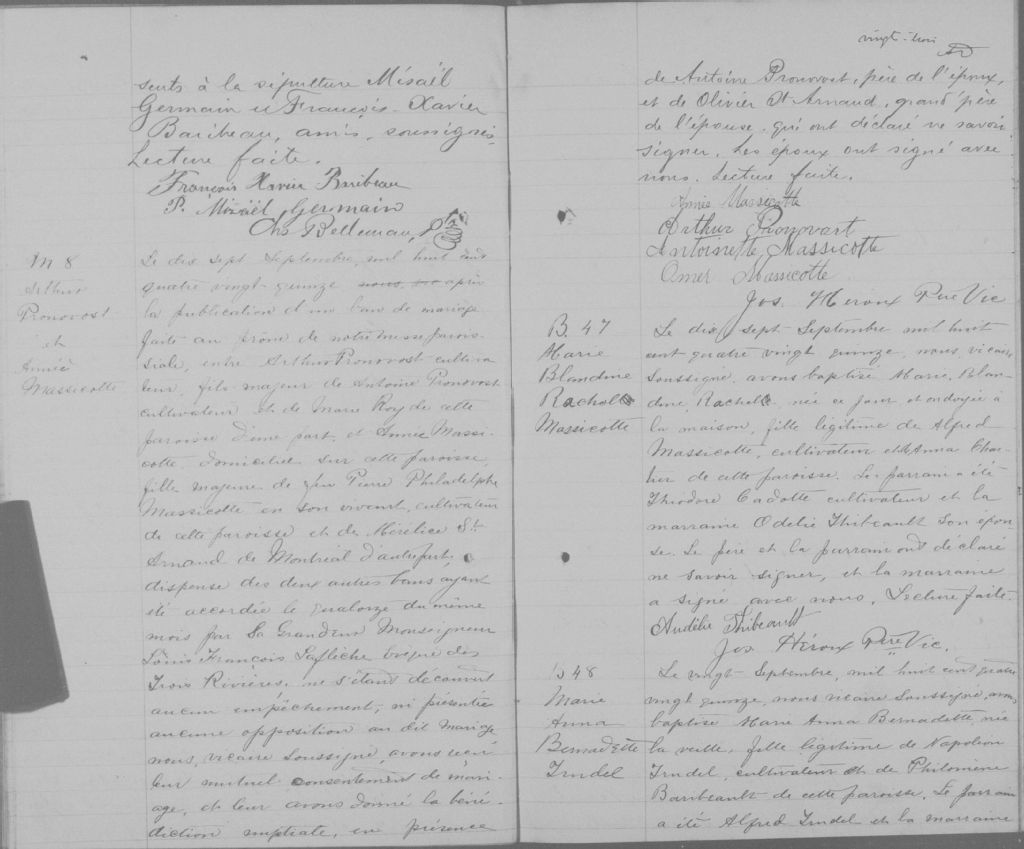 sents à la sépulture Misaël
Germain et François-Xavier
Baribeau, amis, soussignés.
Lecture faite.
François Xavier Baribeau
P. Misaël Germain
Chs Bellemare, Ptre
M 8
Arthur
Pronovost
et
Annie
Massicotte
Le dix sept Septembre, mil huit cent
quatre vingt-quinze nous, après
la publication d'un ban de mariage
faite au prône de notre messe parois-
siale, entre Arthur Pronovost cultiva
teur, fils majeur de Antoine Pronovost
cultivateur et de Marie Roy de cette
paroisse d'une part, et Annie Massi-
cotte, domiciliée sur cette paroisse,
fille majeure de feu Pierre Philadelphe
Massicotte en son vivant, cultivateur
de cette paroisse et de Mérélice St
Arnaud de Montréal d'autre part;
dispense des deux autres bans ayant
été accordée le quatorze du même
mois par Sa Grandeur Monseigneur
Louis François Laflèche évêque des
Trois Rivières, ne s'étant découvert
aucun empêchement, ni présentée
aucune opposition au dit mariage
nous, vicaire soussigné, avons reçu
leur mutuel consentement de mari-
age, et leur avons donné la béné-
diction nuptiale, en présence
vingt-trois
de Antoine Pronovost, père de l'époux,
et de Olivier St Arnaud, grand'père
de l'épouse, qui ont déclaré ne savoir
signer. Les époux ont signé avec
nous. Lecture faite.
Annie Massicotte
Arthur Pronovart
Antoinette Massicotte
Omer Massicotte
Jos. Héroux Ptre Vic
B 47
Marie
Blandine
Rachelle
Massicotte
Le dix sept Septembre mil huit
cent quatre vingt quinze, nous, vicaire
soussigné, avons baptisé Marie, Blan-
dine, Rachelle, née ce jour et ondoyée à
la maison, fille légitime de Alfred
Massicotte, cultivateur et de Anna Char-
tier de cette paroisse. Le parrain a été
Théodore Cadotte cultivateur et la
marraine Odélie Thibeault son épou-
se. Le père et la parrain ont déclaré
ne savoir signer, et la marraine
a signé avec nous. Lecture faite.
Audélie Thibeault
Jos Héroux Ptre Vic.
B 48
Marie
Anna
Bernadette
Trudel
Le vingt Septembre, mil huit cent quatre
vingt quinze, nous vicaire soussigné, avons
baptisé Marie Anna Bernadette, née
la veille, fille légitime de Napoléon
Trudel, cultivateur et de Philomène
Baribeault de cette paroisse. Le parrain
a été Alfred Trudel et la marraine